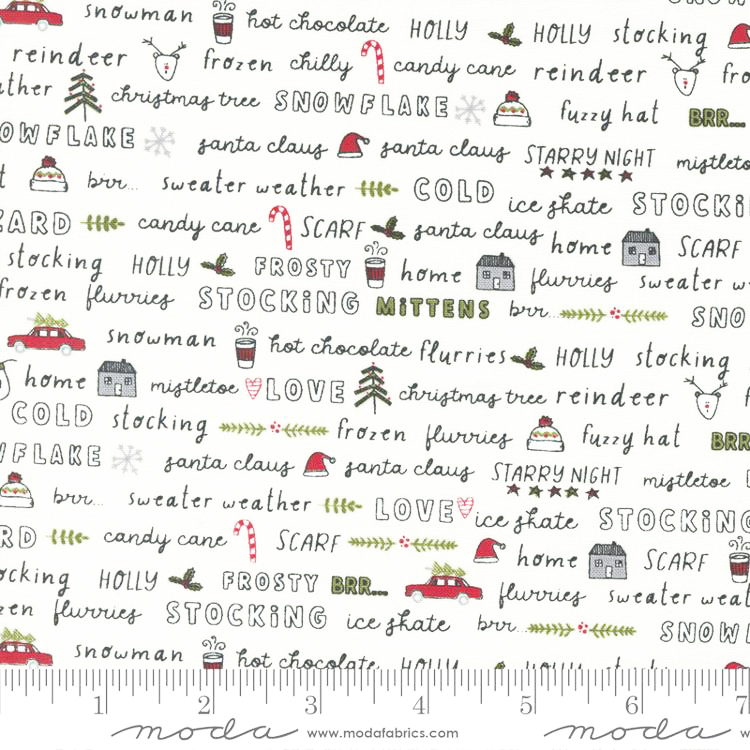 snowman hot chocolate HOLLY HOLLY stocking
reindeer frozen chilly candy cane reindeer
christmas tree SNOWFLAKE fuzzy hat BRR...
santa claus santa claus STARRY NIGHT
brr... sweater weather COLD ice skate
candy cane SCARF santa claus home SCARF
stocking HOLLY FROSTY home flurries sweater
frozen flurries STOCKiNG MiTTENS brr...
snowman hot chocolate flurries HOLLY stocking
home mistletoe LOVE christmas tree reindeer
COLD stocking frozen flurries fuzzy hat
santa claus santa claus STARRY NIGHT mistletoe
brr... sweater weather LOVE ice skate STOCKiNG
candy cane SCARF home SCARF
HOLLY FROSTY BRR... flurries sweater
flurries STOCKiNG ice skate brr...
snowman hot chocolate
1 2 3 4 5 6 7
moda www.modafabrics.com moda